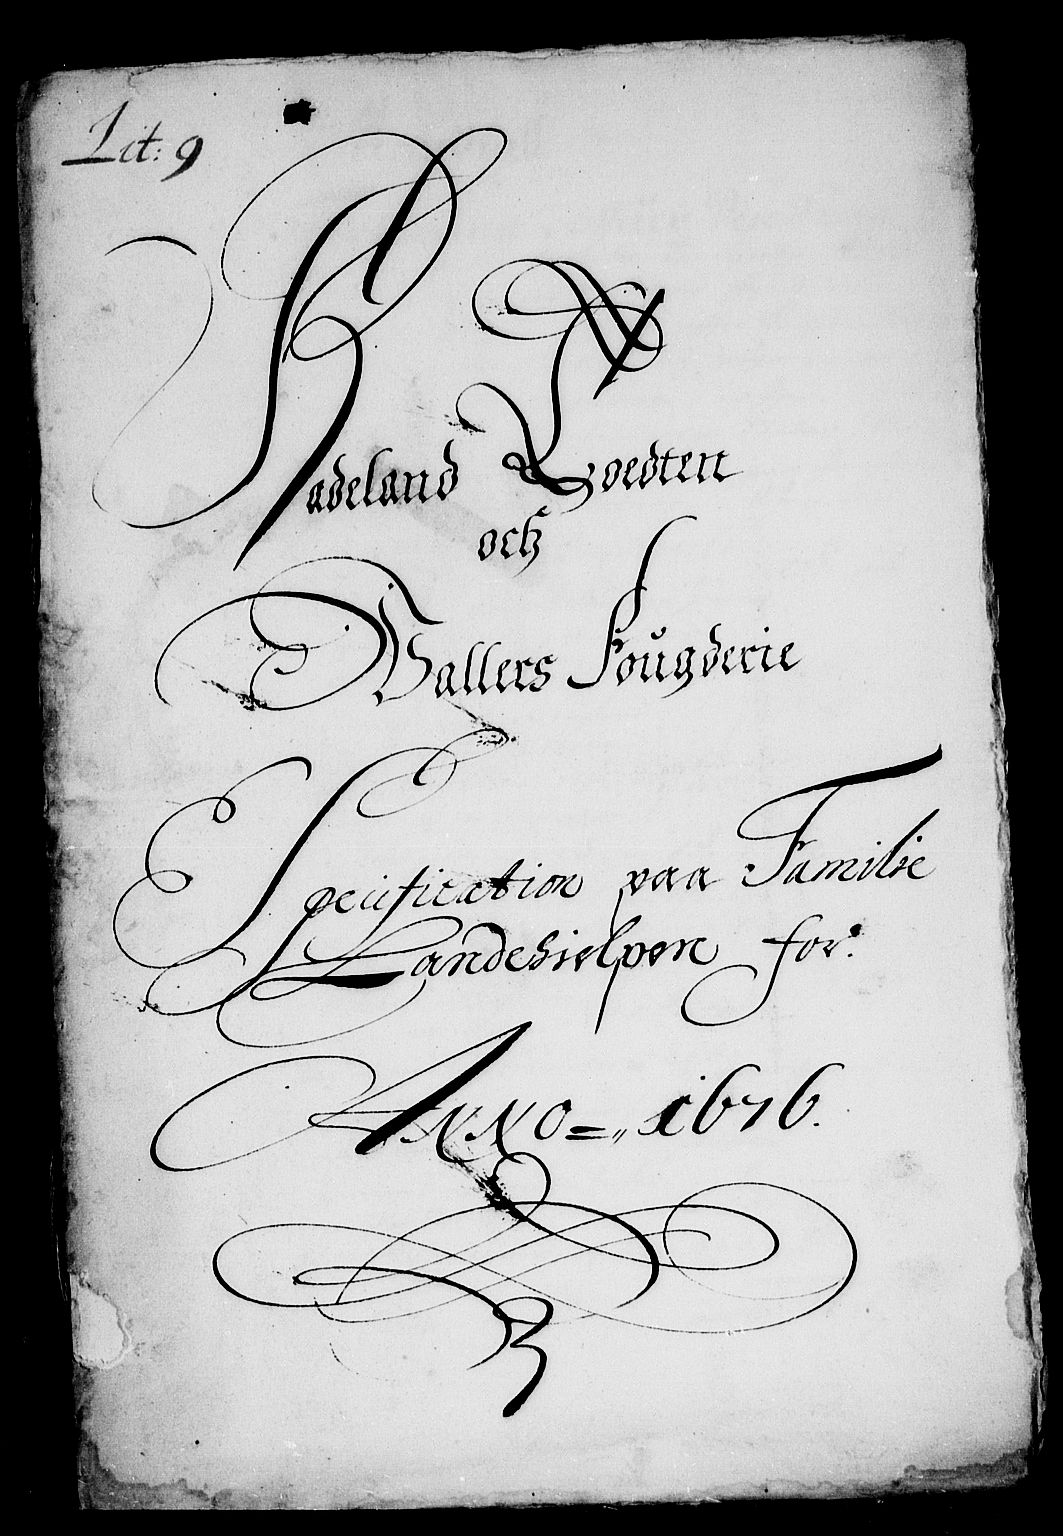 Lit: 9
Hadeland Toedten
och
Wallers Fougderie
Specification paa Familie
Landehielpen for:
ANNO =,, 1676.